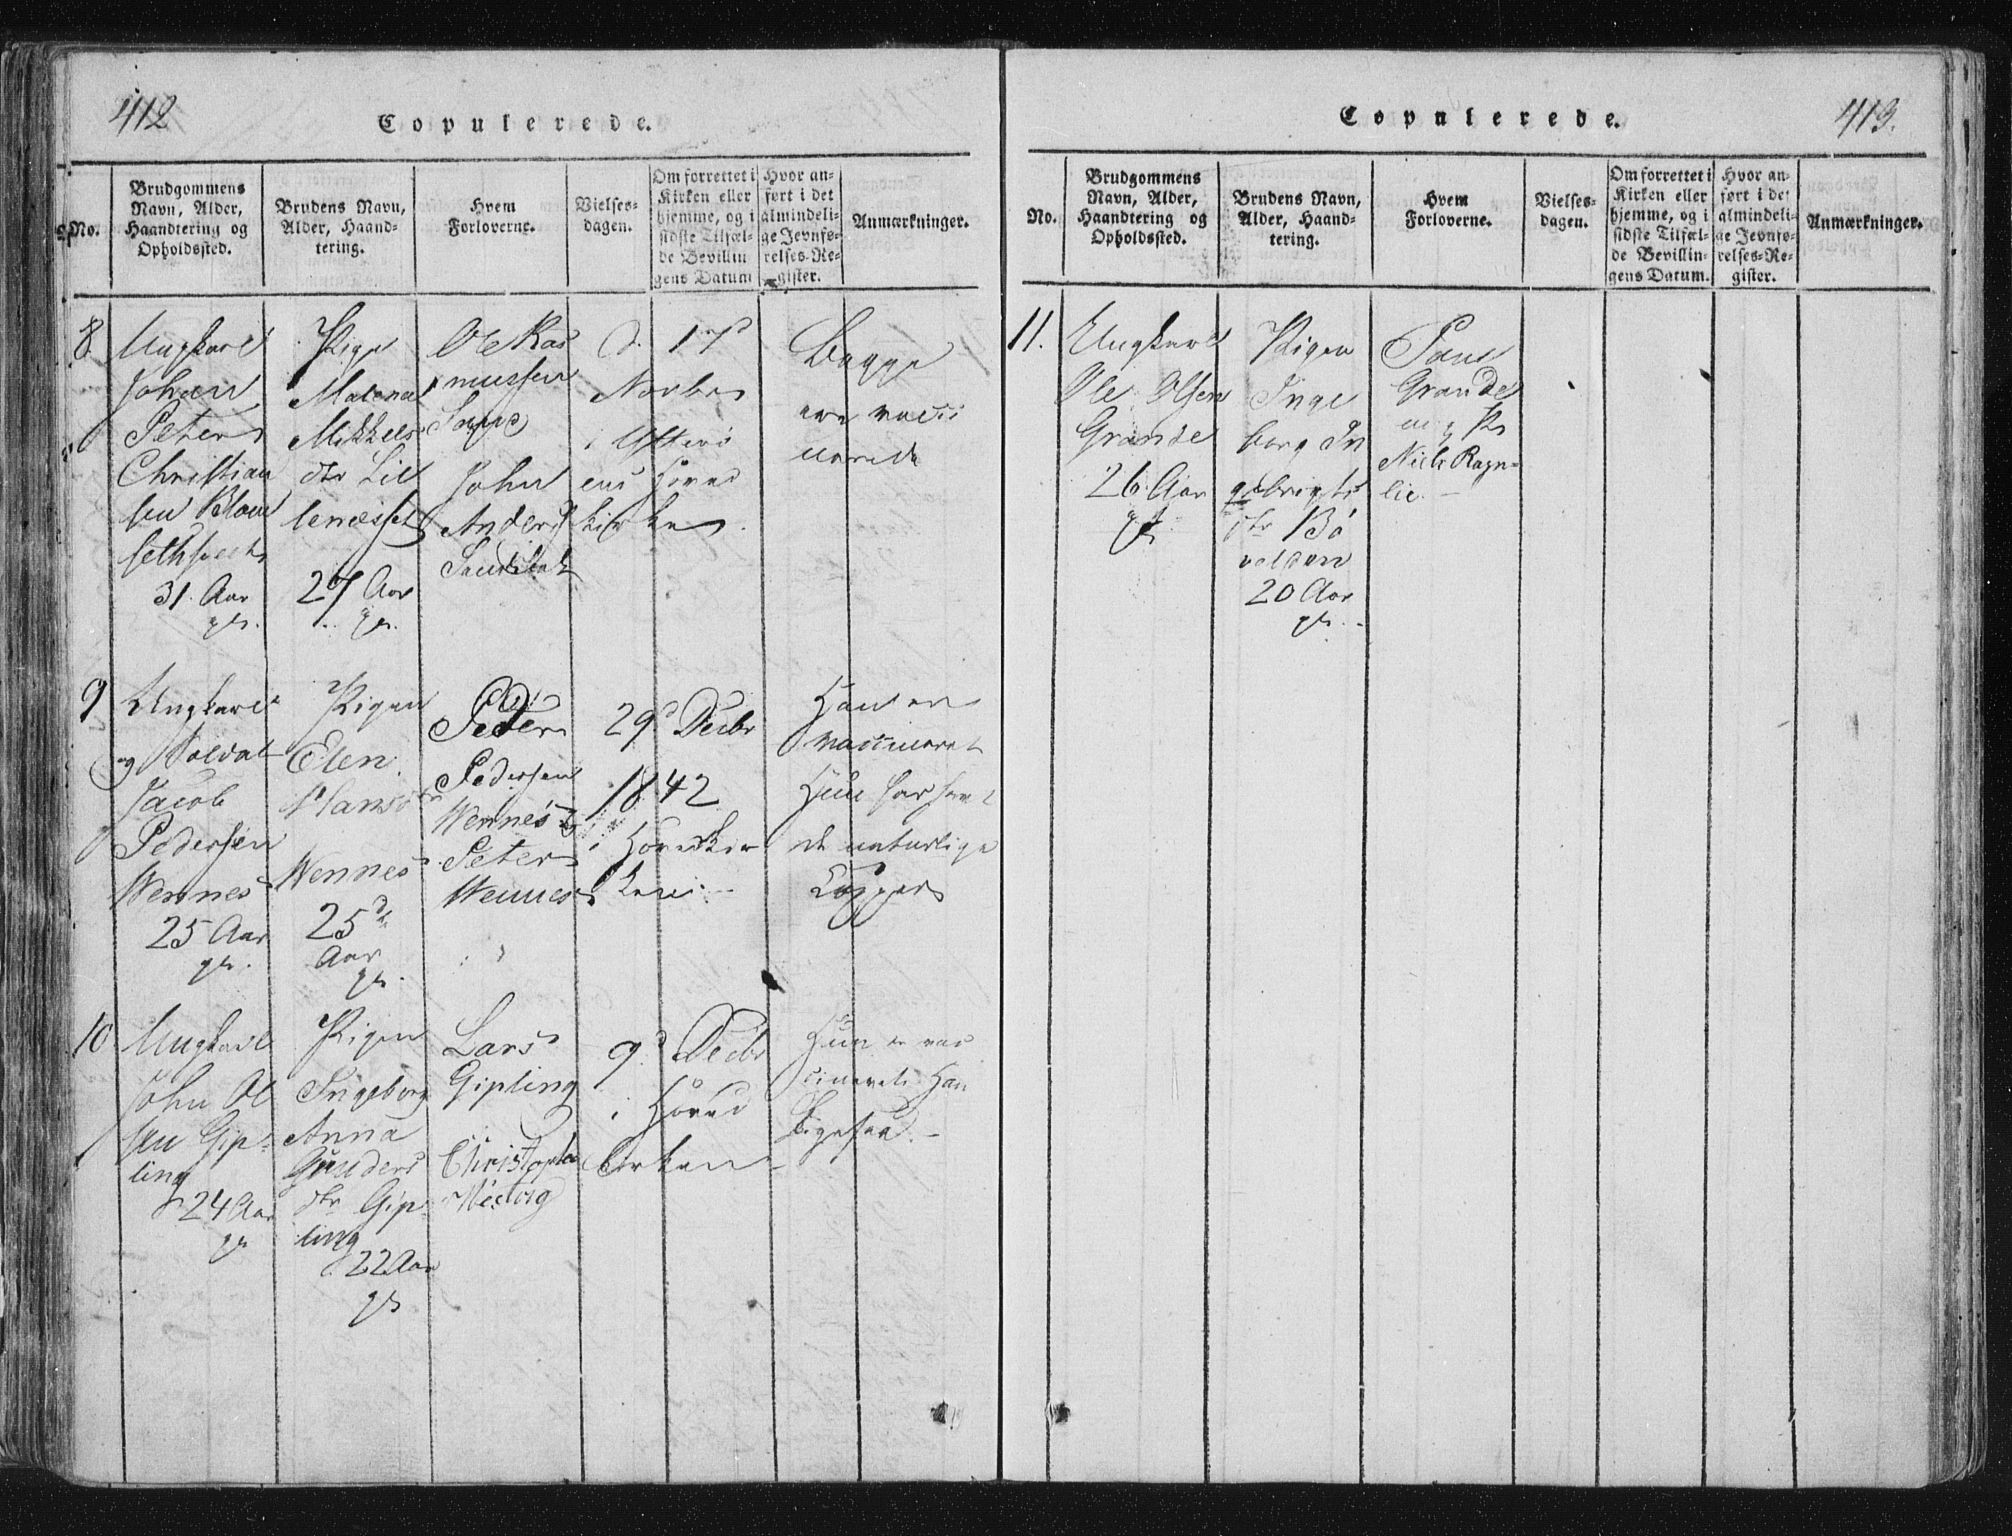 412
Copulerede.
No.
Brudgommens
Navn, Alder,
Haandtering og
Opholdssted.
Brudens Navn,
Alder, Haand-
tering.
Hvem
Forloverne.
Vielses-
dagen.
Om forrettet i
Kirken eller
hjemme, og i
sidste Tilfæl-
de Bevillin
gens Datum
Hvor an-
ført i det
almindeli-
ge Jevnfø-
relses-Re-
gister.
Anmærkninger.
8.
Ungkarl
Johan
Peter
Christian
sen
31. Aar
gl.
Pige
Malena
Mikkels
dtr Lil
lenæsset
27 Aar
gl.
Ole Ras
mussen
John
Anders
d. 17d
Novbr
i
ens Hoved
kirke.
Begge
ere vacci
nerede
9
Ungkarl
og Soldat
Jacob
Pedersen
Wennes
25 Aar
gl.
Pigen
Elen
Hansdr
Wennes
25
Aar
gl.
Peder
Pedersen
Wennes
Peter
Wennes
29d Decbr
1842
i Hovedkir
ken.
Han er
vaccineret
Hun har havt
de naturlige
Kopper
10
Ungkarl
John Ol
sen Gip-
ling
24 Aar
gl
Pigen
Ingeborg
Anna
Gunders
dtr Gip-
ling
22 Aar
gl
Lars
Gipling
Christopher
9d Decbr
i Hoved
Kirken
Hun er vac
cineret Han
ligesaa.
413.
Copulerede.
No.
Brudgommens
Navn, Alder,
Haandtering og
Opholdssted.
Brudens Navn,
Alder, Haand-
tering.
Hvem
Forloverne.
Vielses-
dagen.
Om forrettet i
Kirken eller
hjemme, og i
sidste Tilfæl-
de Bevillin-
gens Datum.
Hvor an-
ført i det
almindeli-
ge Jevnfø-
relses-Re-
gister.
Anmærkninger.
11.
Ungkarl
Ole Olsen
Grande
26 Aar
gl.
Pigen
Inge
borg In
gebrigts
dtr Bö
volden
20 Aar
gl.
Grande
og
Niels Ragn-
lie.